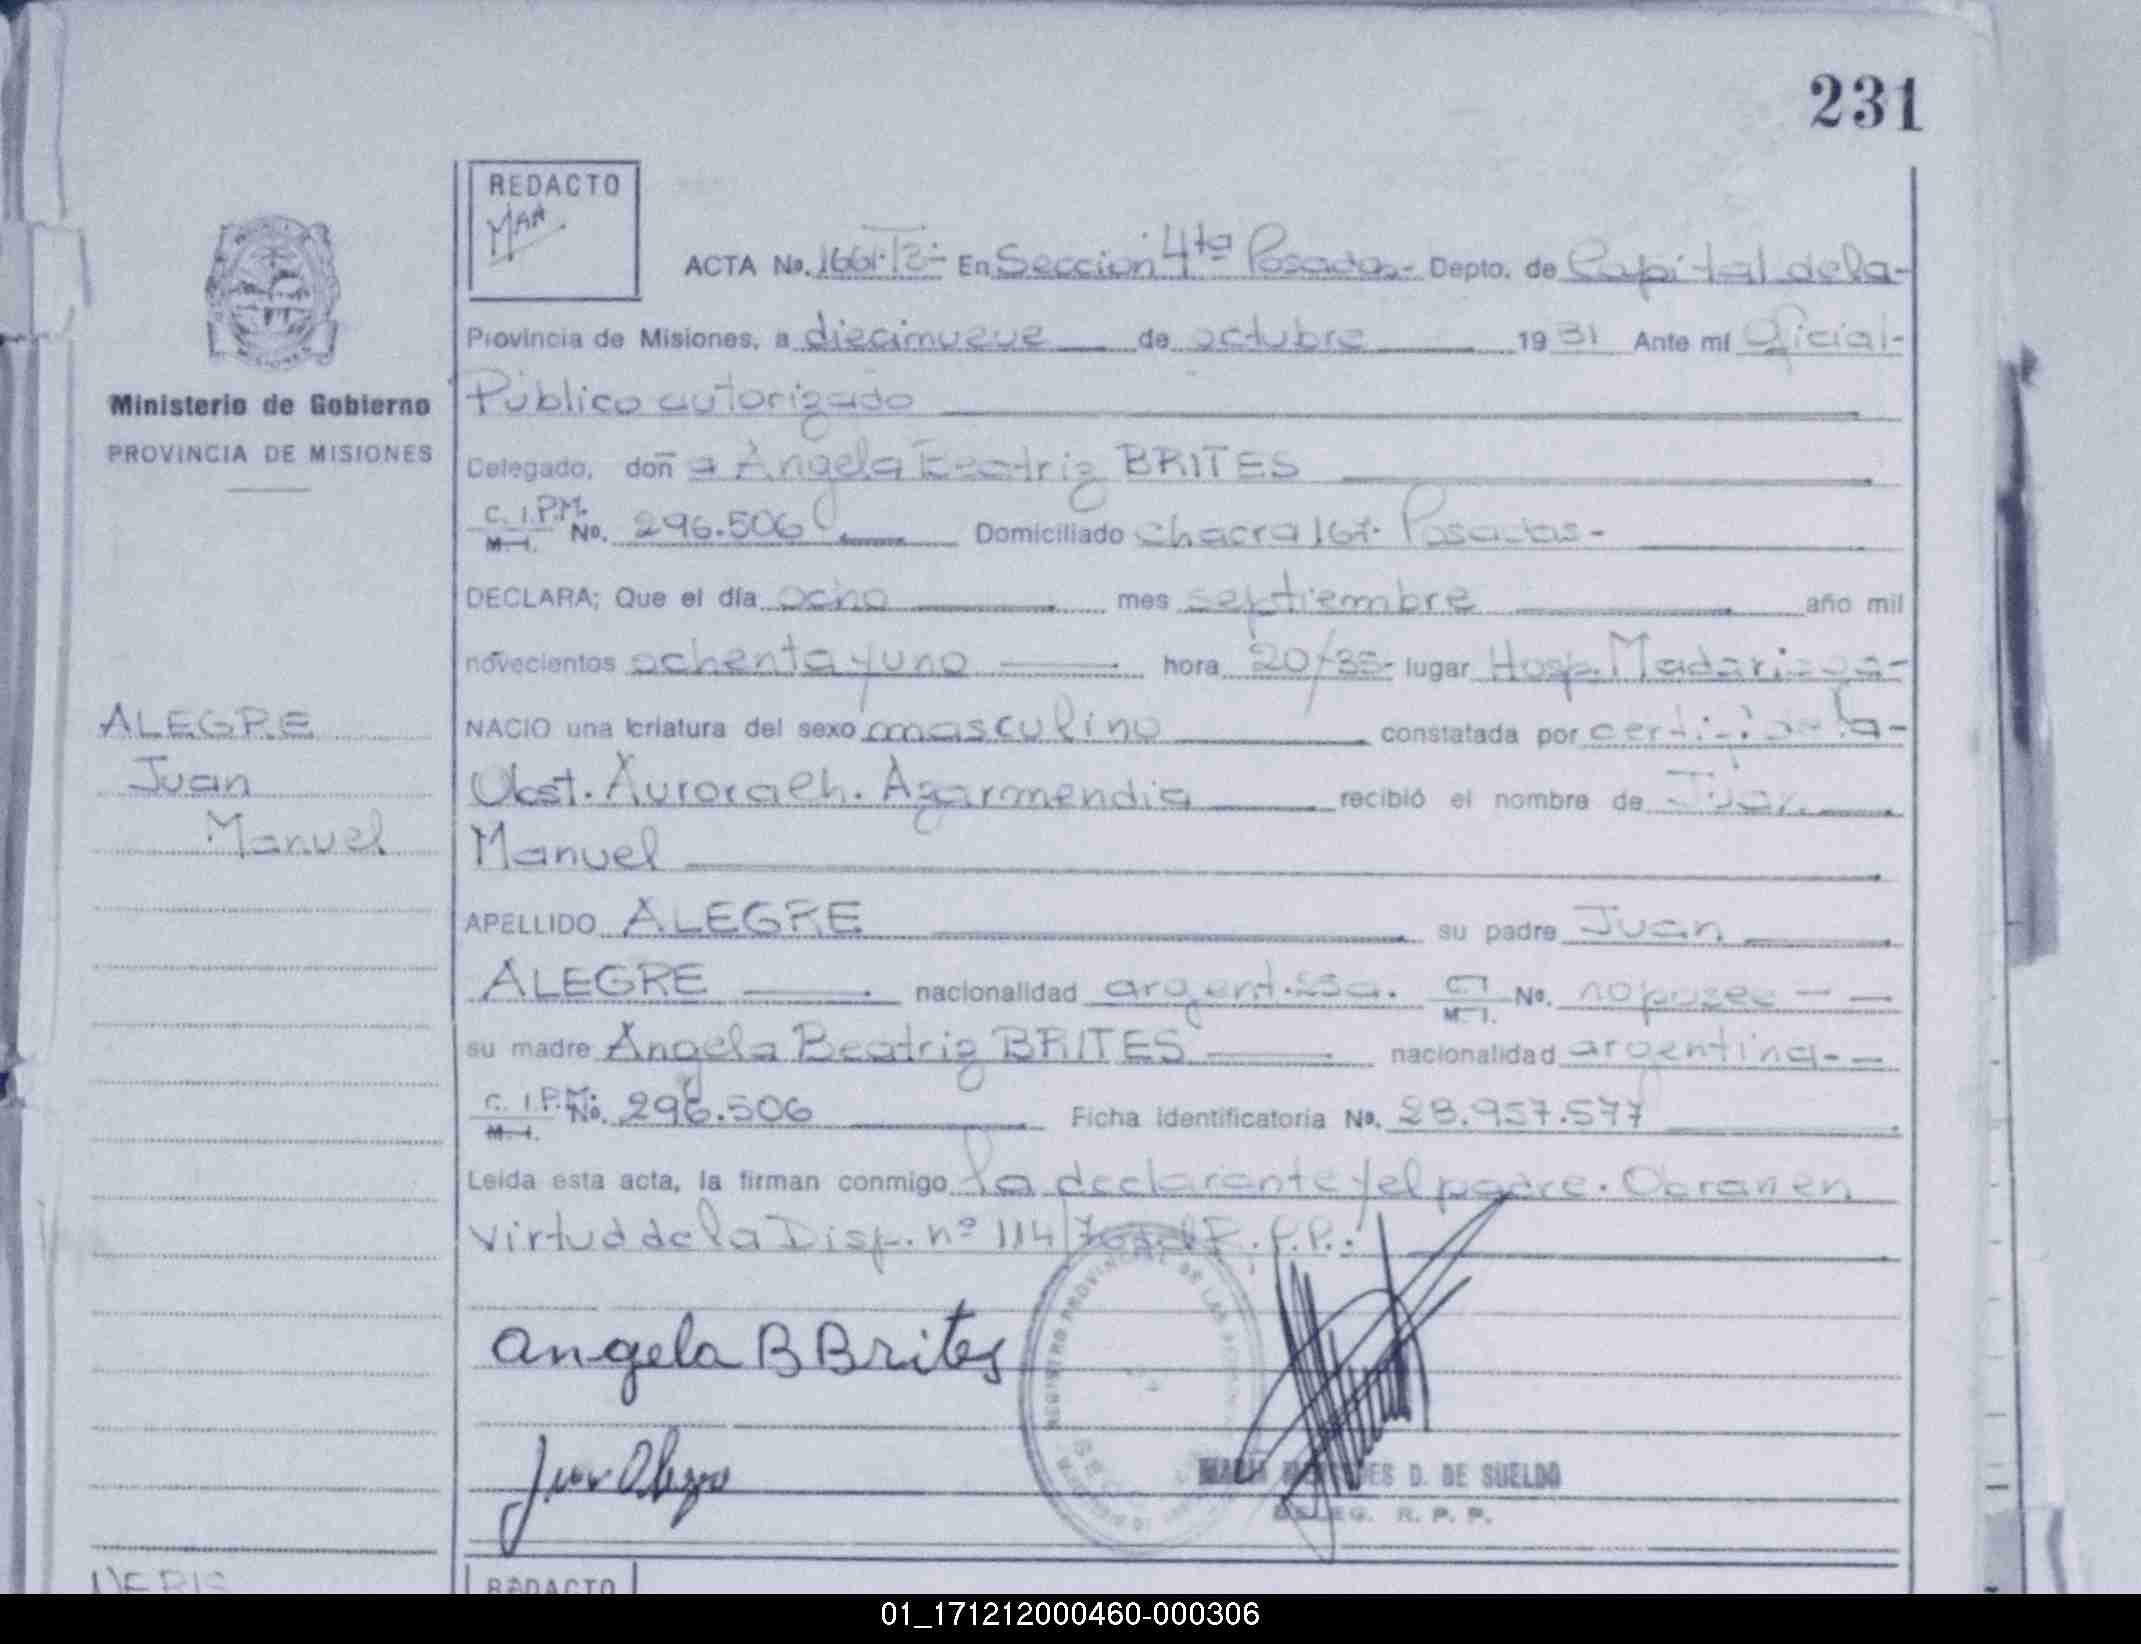 231
REDACTO
MAM
ACTA No. 1661-T3- En Sección 4ta Posadas- Depto. de Capital de la-
Provincia de Misiones, a diecinueve de octubre 1981 Ante mí Oficial-
Ministerio de Gobierno
Público autorizado
PROVINCIA DE MISIONES
Delegado, doña Angela Beatriz BRITES
C. I.P.M. No. 296.506
M. I.
Domiciliado Chacra 167- Posadas-
DECLARA; Que el día ocho mes septiembre año mil
novecientos ochenta y uno hora 20/35- lugar Hosp. Madariaga-
ALEGRE
NACIO una criatura del sexo masculino constatada por
Juan
Obst. Aurora Ch. Agarmendia recibió el nombre de Juan
Manuel
Manuel
APELLIDO ALEGRE su padre Juan
ALEGRE nacionalidad argentina. C.I. No. no posee
M. I.
su madre Angela Beatriz BRITES nacionalidad argentina-
C. I.P.M. No. 296.506 Ficha identificatoria No. 28.957.577
M. I.
Leída esta acta, la firman conmigo la declarante y el padre. Obran en
virtud de la Disp. nº 114/
R.P.P.
Angela B Brites
REGISTRO PROVINCIAL DE LAS
Juan Alegre
MARIA MERCEDES D. DE SUELDO
DELEG. R. P. P.
REDACTO
01_171212000460-000306